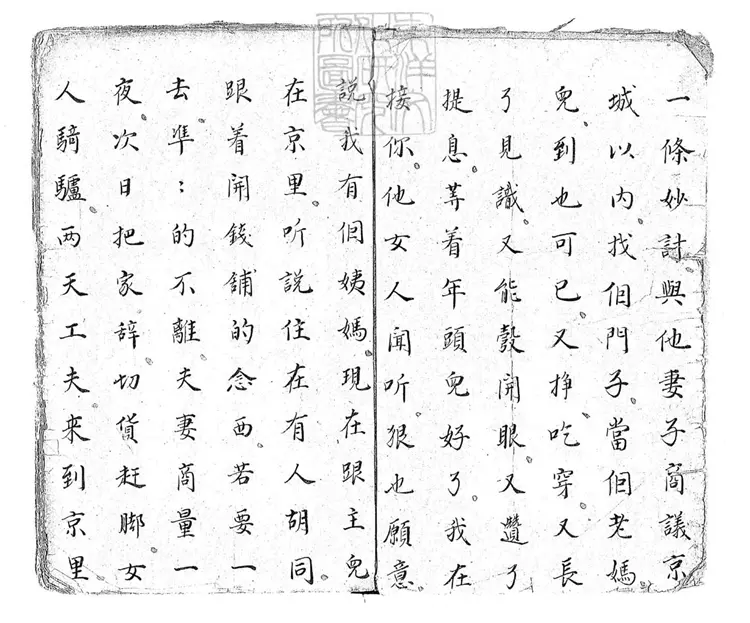 一條妙討與他妻子商議京
城以内找個門子當個老媽
兒到也可已又掙吃穿又長
了見識又能彀開眼又了
提息等着年頭兒好了我在
接你他女人聞听狠也願意
說我有個姨媽現在跟主兒
在京里听說住在有人胡同
跟着開錢舖的念西若要一
去準〻的不離夫妻商量一
夜次日把家辞切貨赶脚女
人騎驢两天工夫来到京里